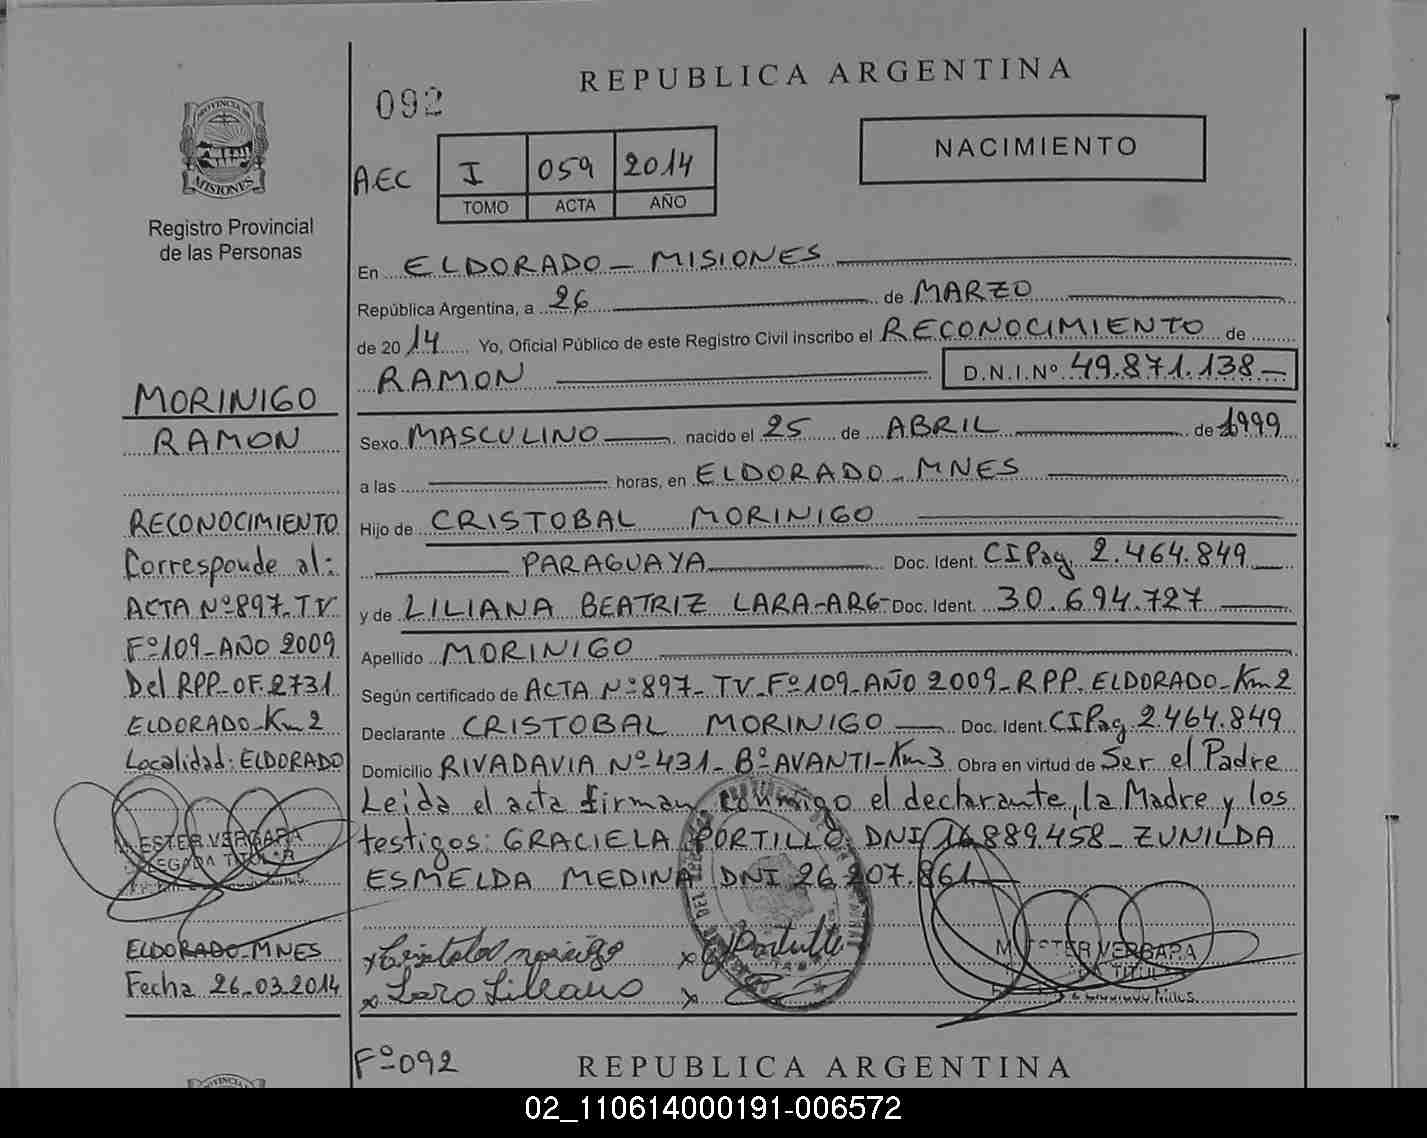 REPUBLICA ARGENTINA
092
NACIMIENTO
AEC
I 059 2014
TOMO ACTA AÑO
PROVINCIA DE
MISIONES
Registro Provincial
de las Personas
MORINIGO
RAMON
RECONOCIMIENTO
Corresponde al:
ACTA Nº897-TV
Fº109-AÑO 2009
Del RPP-OF.2731
ELDORADO-Km2
Localidad: ELDORADO
ESTER VERGARA
ELDORADO-MNES
Fecha 26-03-2014
En ELDORADO - MISIONES
República Argentina, a 26 de MARZO
de 2014 Yo, Oficial Público de este Registro Civil inscribo el RECONOCIMIENTO de
RAMON D.N.I.Nº 49.871.138-
Sexo MASCULINO nacido el 25 de ABRIL de 1999
a las horas, en ELDORADO - MNES
Hijo de CRISTOBAL MORINIGO
PARAGUAYA Doc. Ident. CIPag. 2.464.849
y de LILIANA BEATRIZ LARA-ARG- Doc. Ident. 30.694.727
Apellido MORINIGO
Según certificado de ACTA Nº897-TV-Fº109-AÑO 2009-RPP. ELDORADO-Km2
Declarante CRISTOBAL MORINIGO Doc. Ident. CIPag. 2.464.849
Domicilio RIVADAVIA Nº431-BºAVANTI-Km3 Obra en virtud de Ser el Padre
Leida el acta firman conmigo el declarante, la Madre y los
testigos: GRACIELA PORTILLO DNI 16.889.458- ZUNILDA
ESMELDA MEDINA DNI 26.207.861
x Cristobal morinigo x G Portillo
x Lara Liliana x
ESTER VERGARA
TITULAR
Fº092
REPUBLICA ARGENTINA
02_110614000191-006572